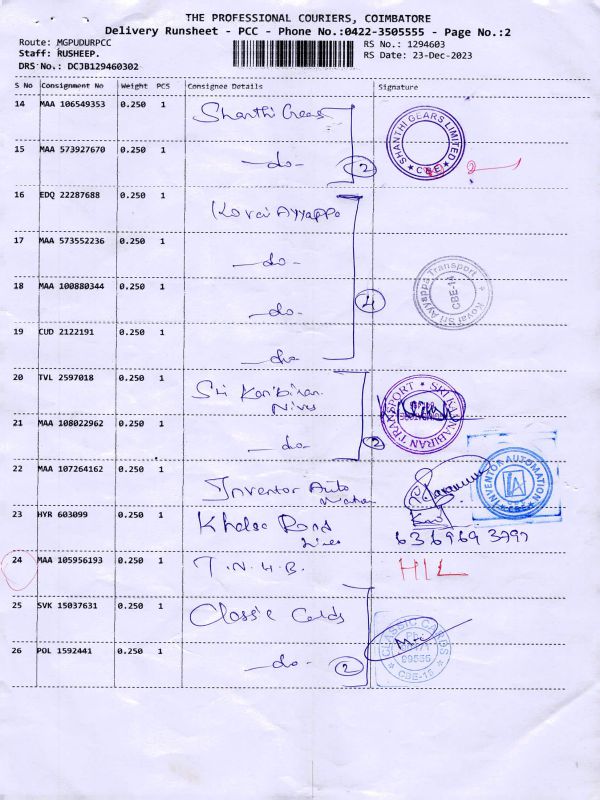 THE PROFESSIONAL COURIERS, COIMBATORE
Delivery Runsheet - PCC - Phone No.:0422-3505555 - Page No.:2
Route: MGPUDURPCC
RS No.: 1294603
Staff: RUSHEEP.
RS Date: 23-Dec-2023
DRS No.: DCJB129460302
S No Consignment No Weight PCS Consignee Details Signature
14 MAA 106549353 0.250 1 Shanthi Gears
SHANTHI GEARS LIMITED
* CBE *
15 MAA 573927670 0.250 1 -do- 2
2
16 EDQ 22287688 0.250 1 Kovai Ayyappa
17 MAA 573552236 0.250 1 -do-
18 MAA 100880344 0.250 1 -do- 4
Kovai Sri Ayyappa Transport
CBE-14
19 CUD 2122191 0.250 1 -do-
20 TVL 2597018 0.250 1 Sri
SRI KANNABIRAN TRANSPORT
21 MAA 108022962 0.250 1 -do- 2
22 MAA 107264162 0.250 1 Inventor Auto
mation
INVENTOR AUTOMATION
IA
CBE
23 HYR 603099 0.250 1 Road
636969
24 MAA 105956193 0.250 1 T.N.4.B. HIL
25 SVK 15037631 0.250 1 Classic Cards
CLASSIC CARDS
Ph:
99556
CBE-12
26 POL 1592441 0.250 1 -do- 2